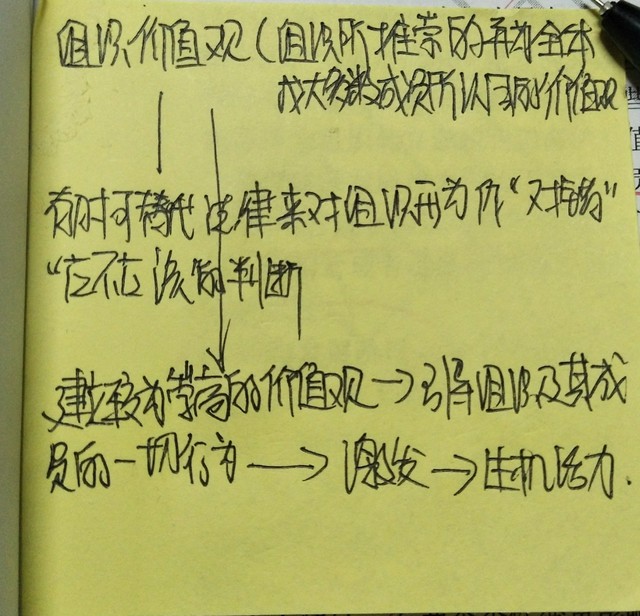 组织价值观（组织所推崇的并为全体
或大多数成员所认同的价值观
有时可替代法律来对组织行为作“对与错”
“应不应该”的判断
建立较为崇高的价值观→引导组织及其成
员的一切行为→激发→生机活力.